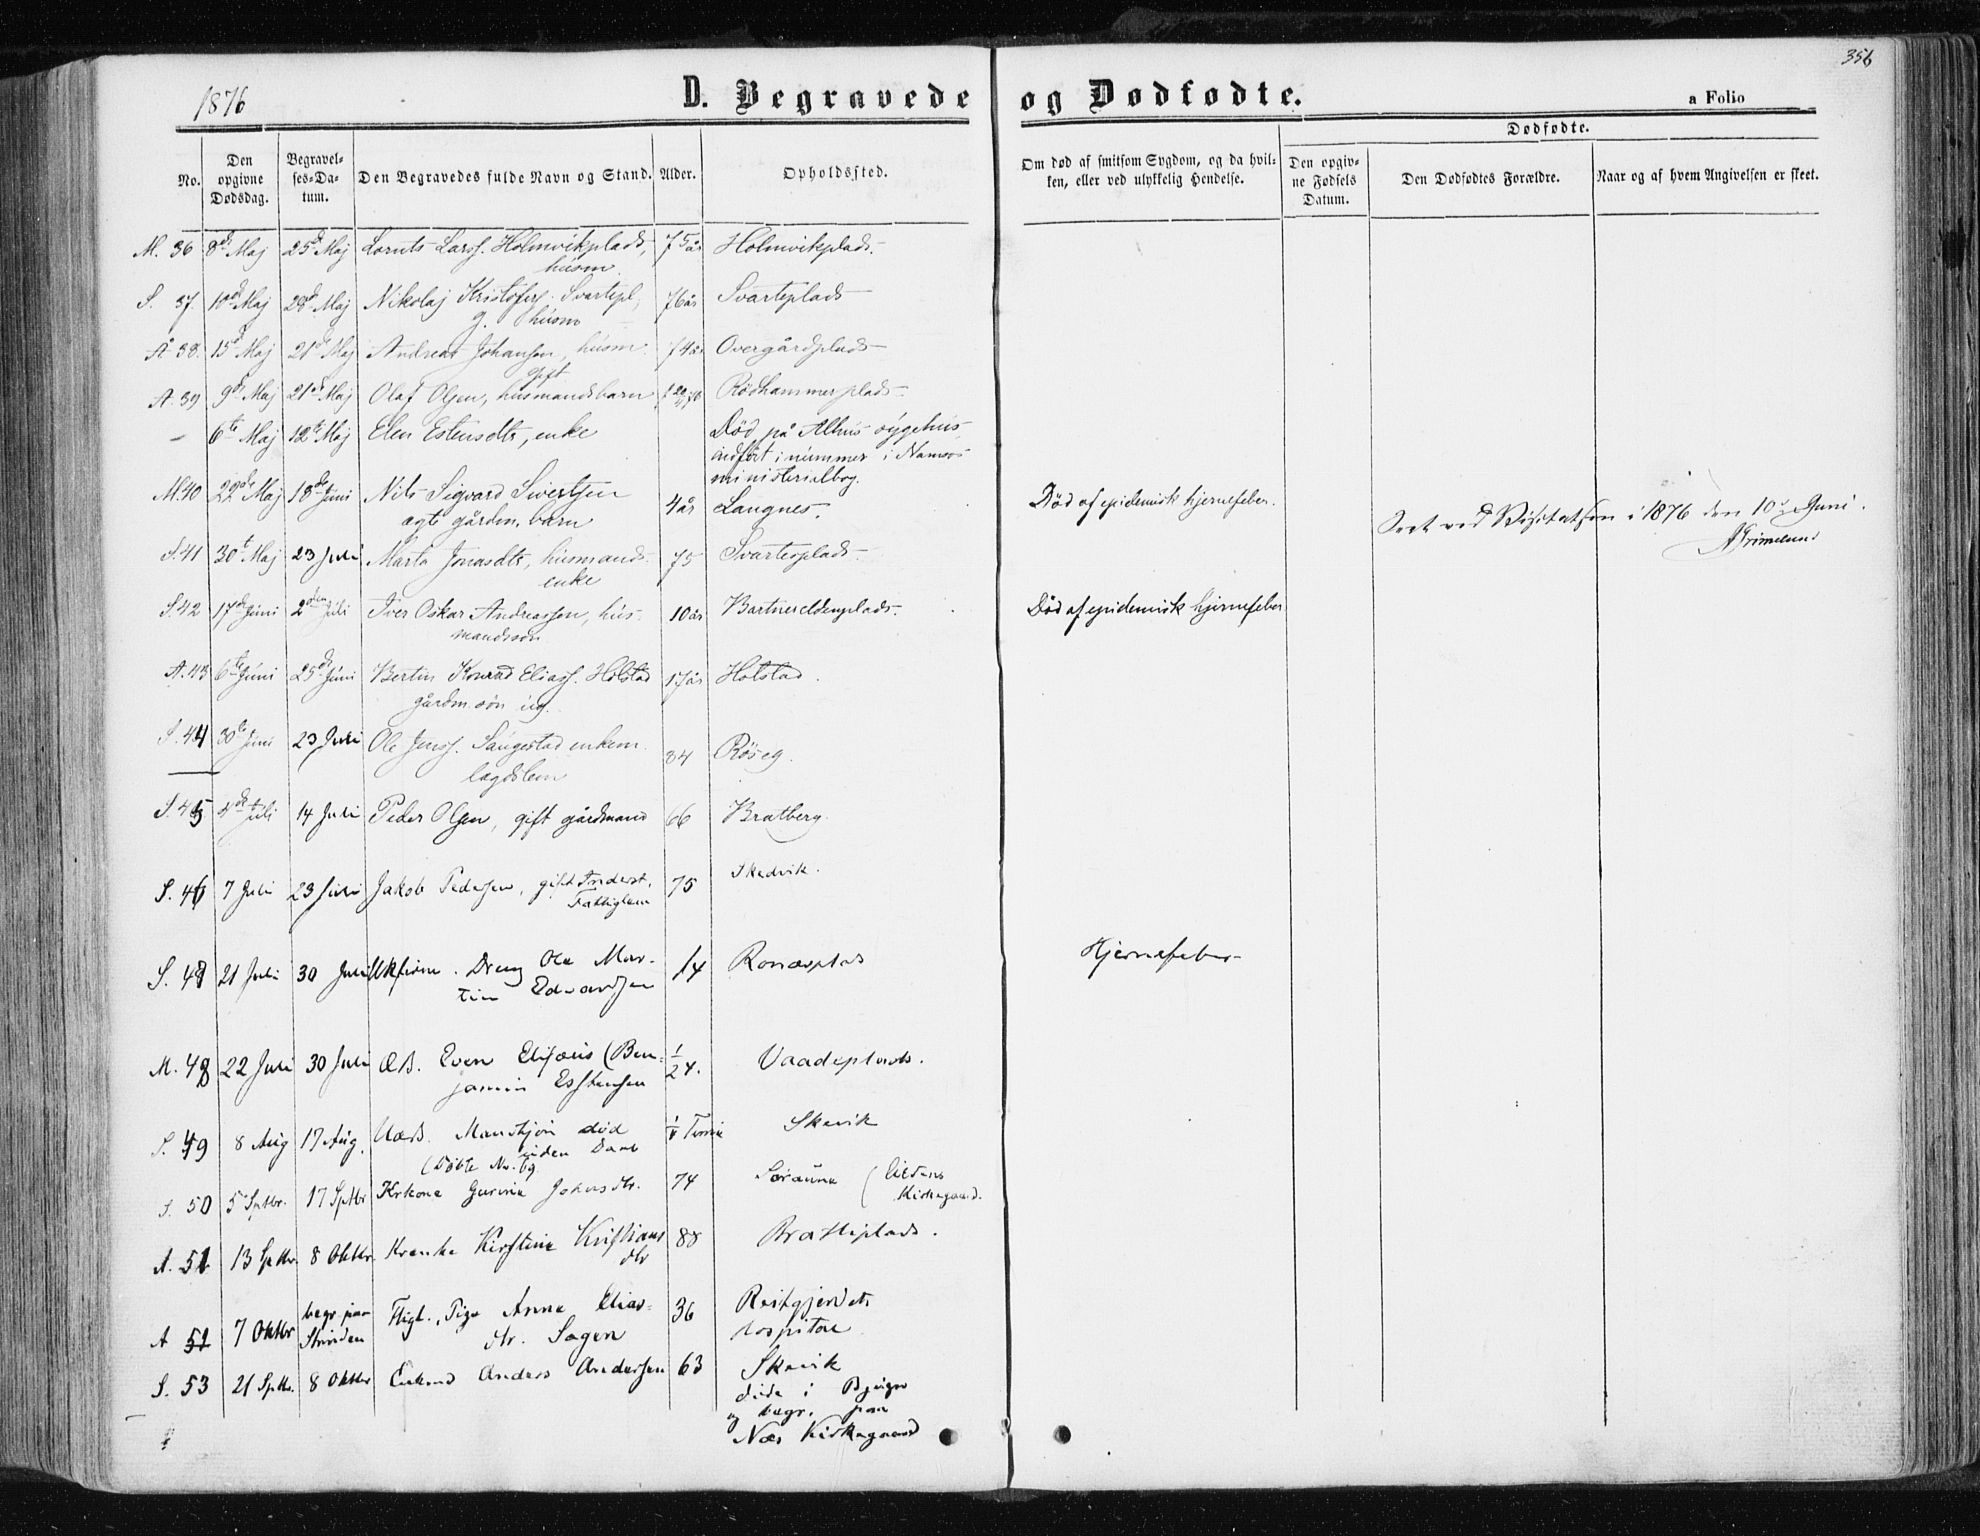 356
1876
D. Begravede og Dødfødte.
a Folio
No.
Den opgivne Dødsdag.
Begravelses-Datum.
Den Begravedes fulde Navn og Stand.
Alder.
Opholdssted.
Om død af smitsom Sygdom, og da hvilken, eller ved ulykkelig Hendelse.
Dødfødte.
Den opgivne Fødsels Datum.
Den Dødfødtes Forældre.
Naar og af hvem Angivelsen er skeet.
M. 36 8de Maj 25de Maj Lornts Larss. Holmvikplads, 75 år Holmvikplads.
husm.
S. 37. 10de Maj 28de Maj Nikolaj Kristofers. Svartepl, 76 år Svarteplads
g. husm
A. 38. 15de Maj 21de Maj Andreas Johansen, husm. 74 år Overgårdplads
gift
A. 39 9de Maj 21de Maj Olaf Olsen, husmandsbarn Rødhammerplads
— 6te Maj 12te Maj Elen Estensdtr, enke Død på Alhus sygehus
indført i nummer i Namsos
ministerialbog.
M. 40 22de Maj 18de Juni Nils Sigvard Sivertsen 4 år Langnes. Død af epidemisk hjernefeber.
ægte gårdm. barn
Seet ved Visitatsen i 1876 den 10de Juni.
AGrimelund
S. 41 30te Maj 23 Juli Marta Jonasdtr, husmands- 75 Svarteplads
enke
S. 42 17de Juni 2den Juli Iver Oskar Andreassen, hus- 10 år Bartneseldenplads. Død af epidemisk hjernefeber
mandssøn
A. 43 6te Juni 25de Juni Bertin Konrad Eliass. Holstad 17 år Holstad.
gårdm. søn ug.
S. 44 30te Juni 23 Juli Ole Jenss. Saugestad enkem. 84 Røseg.
lægdslem
S. 45 4de Juli 14 Juli Peder Olsen, gift gårdmand 66 Bratberg.
S. 46 7 Juli 23 Juli Jakob Pedersen, gift Inderst, 75 Skedvik.
Fattiglem
S. 48 21 Juli 30 Juli Ukfirm. Dreng Ole Mar- 14 Ronæsplads Hjernefeber
tin Edvardsen
M. 48 22 Juli 30 Juli ÆB. Even Elisæus (Ben- 1/24. Vaadeplads.
jamin Esstensen
S. 49 8 Aug 17 Aug. UæB. Mandkjøn død Skevik
uden Daab
(Døbte No. 69
S. 50 5 Sptbr. 17 Sptbr Krkone Gurine Johnsdtr. 74 Søraune (Eldens
Kirkegaard.
A. 51 13 Sptbr. 8 Oktbr. Kirstine Kristians 88 Brattliplads.
dtr
A 51 7 Oktbr begr. paa Strinden Pige Anne Elias- 36 Reitgjerdets
dtr. Sagen hospital
S. 53 21 Sptbr. 8 Oktbr Enkmd Anders Andersen 63 Skevik
døde i Bjugn
og begr. paa
Næs Kirkegaard